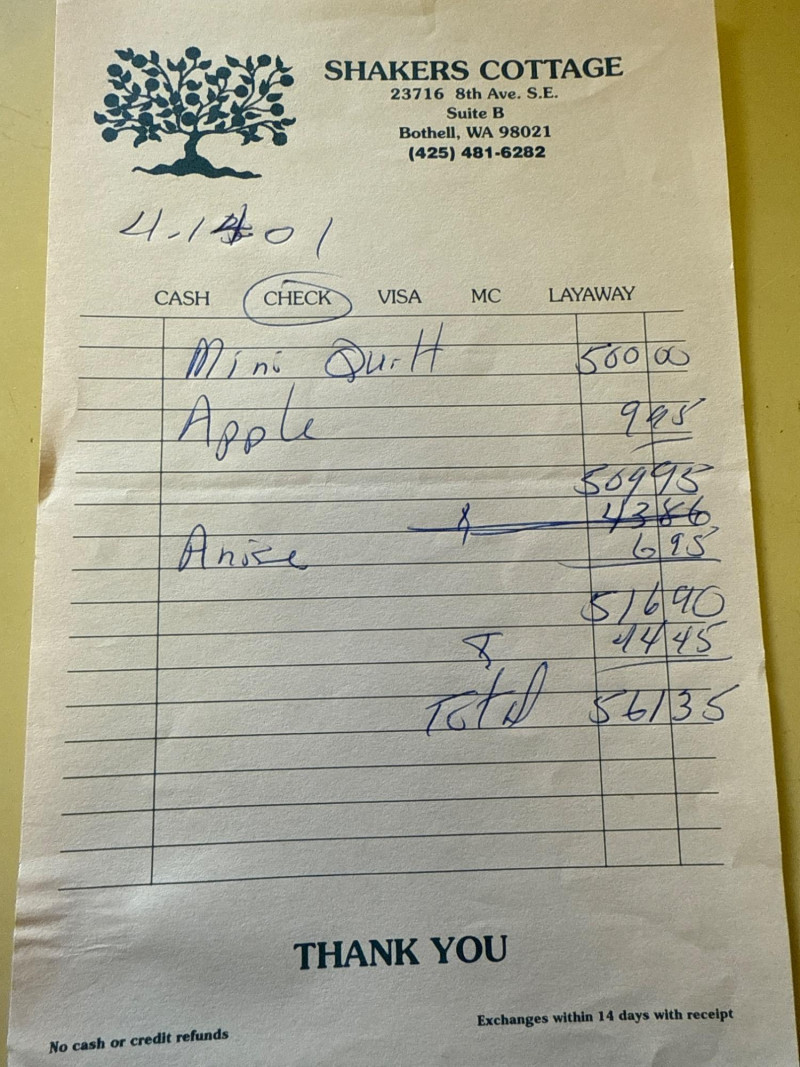 SHAKERS COTTAGE
23716 8th Ave. S.E.
Suite B
Bothell, WA 98021
(425) 481-6282
4.14 01
CASH CHECK VISA MC LAYAWAY
Mini Quilt 500 00
Apple 9 95
509 95
43 86
Anise 6 95
516 90
44 45
Total 561 35
THANK YOU
Exchanges within 14 days with receipt
No cash or credit refunds